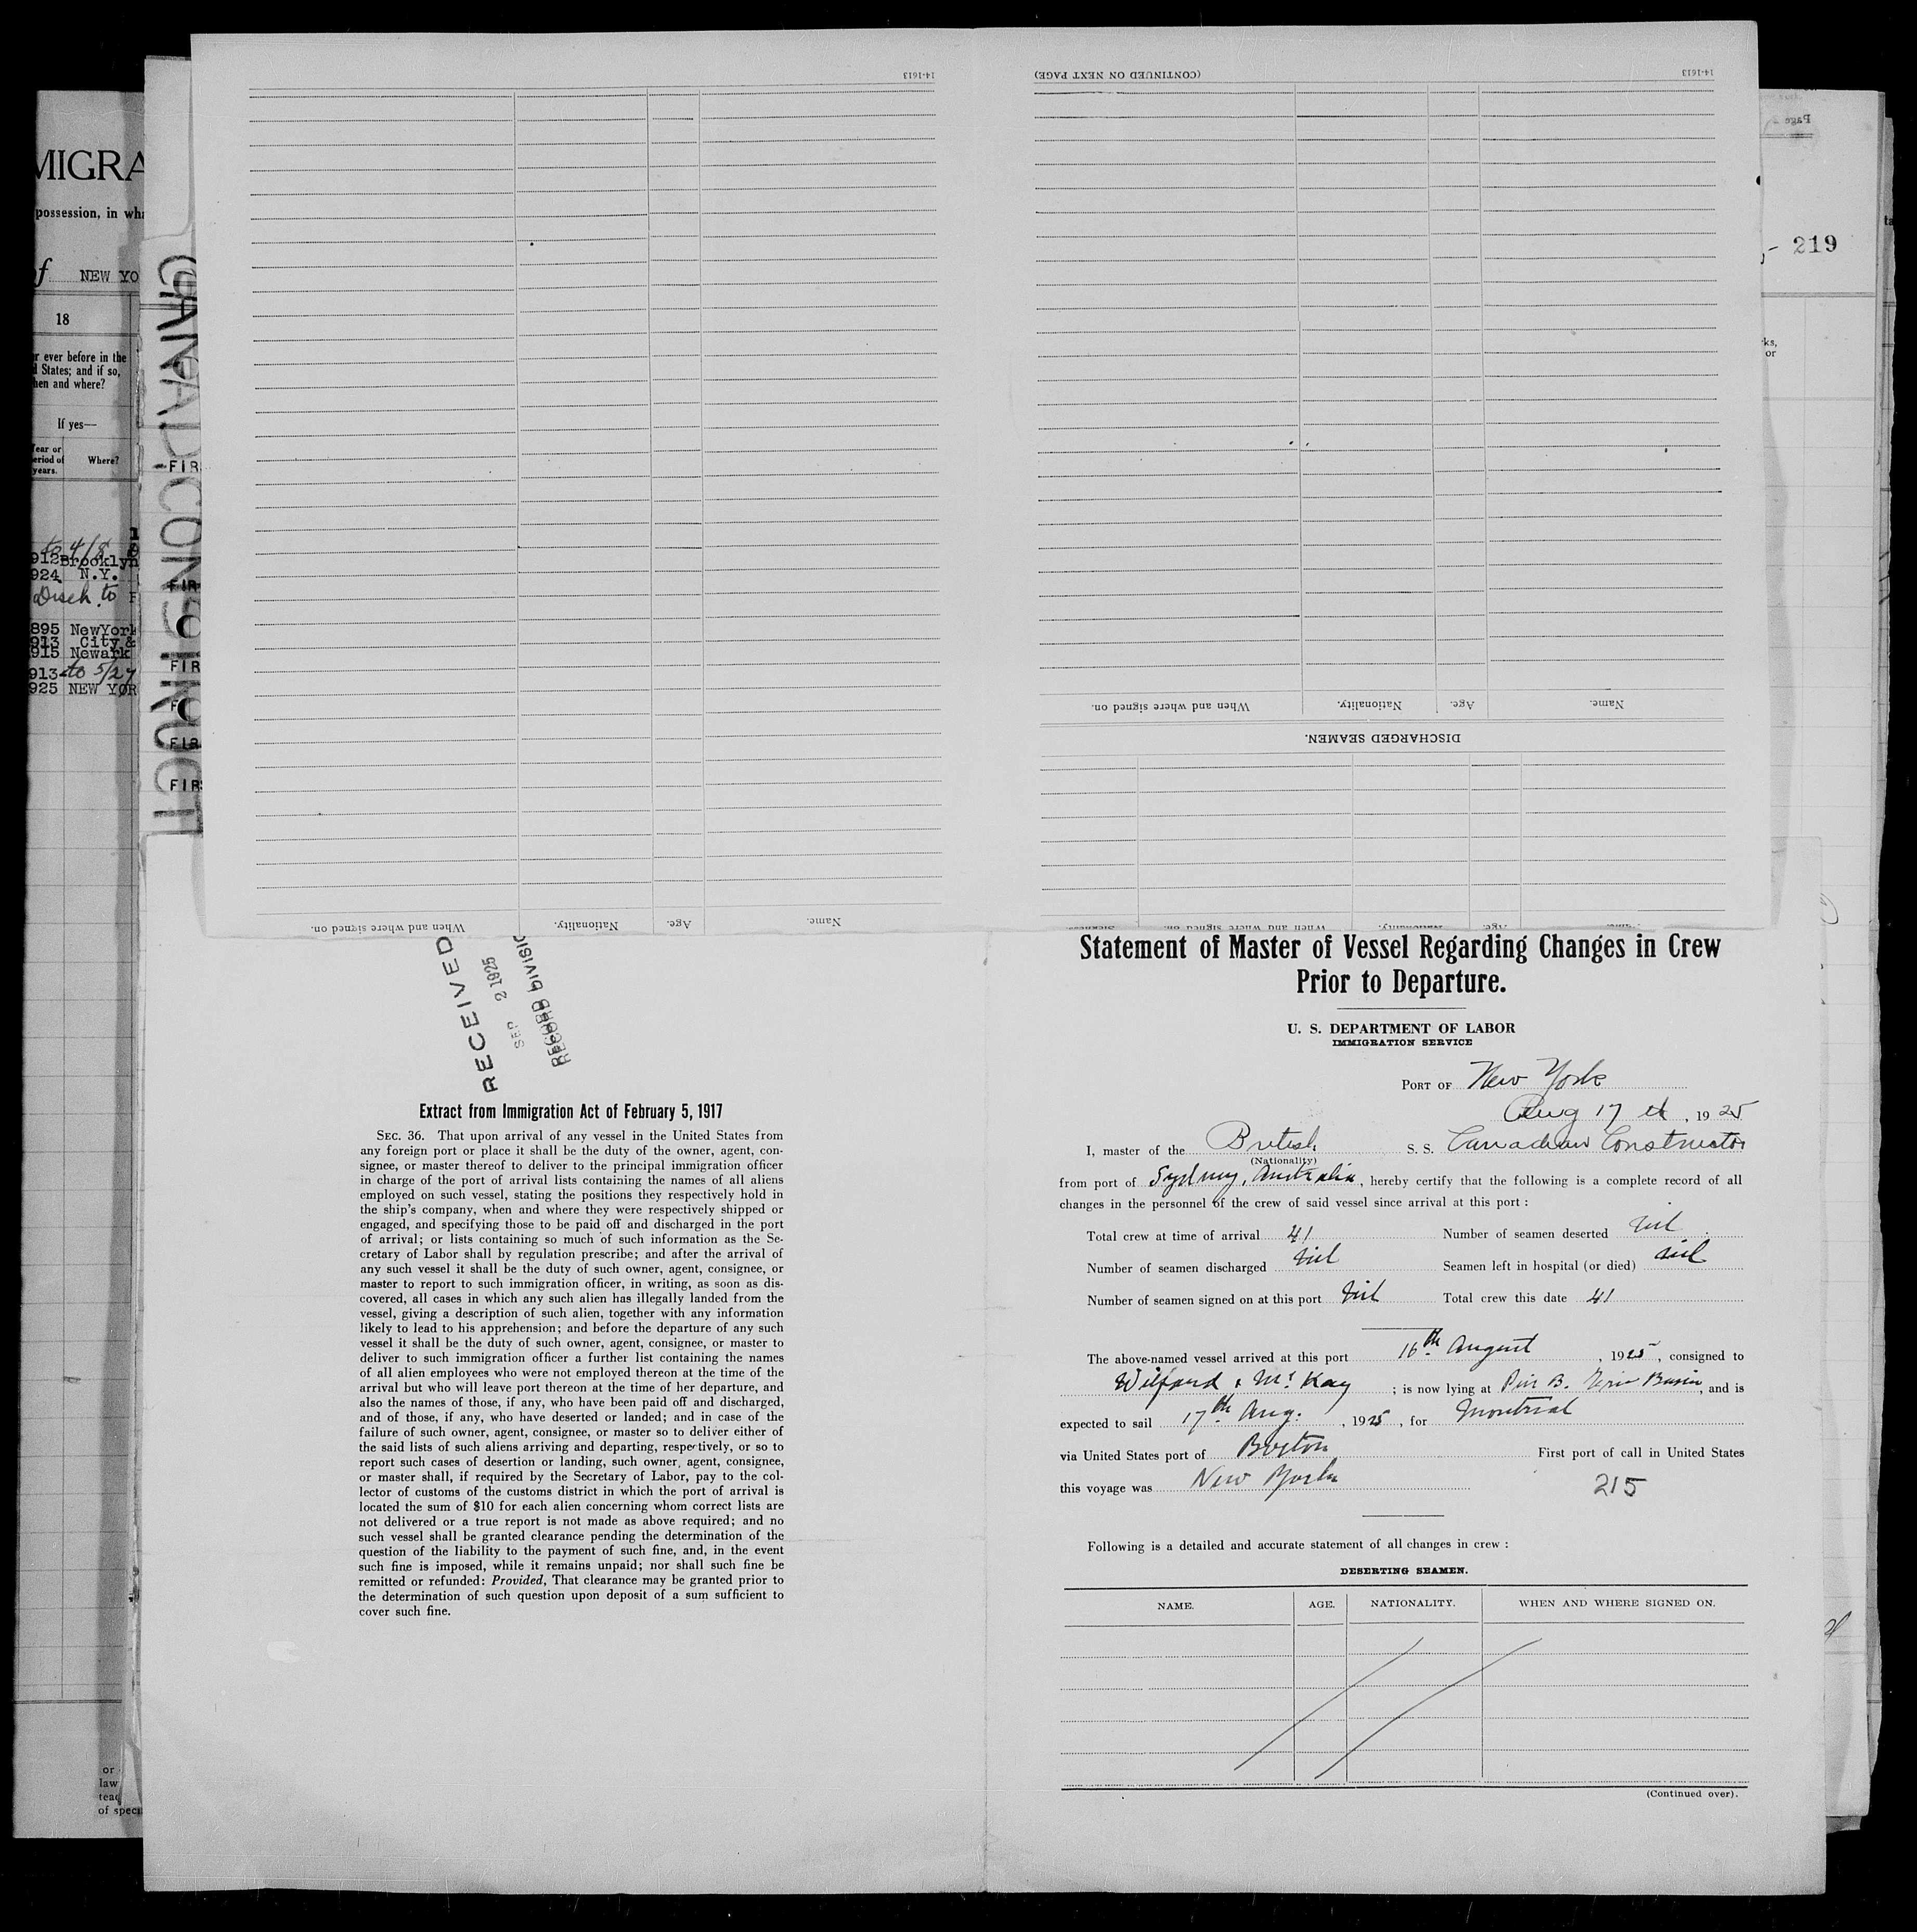 14-1613
(CONTINUED ON NEXT PAGE)
14-1613
Page
MIGRA
possession, in wha
219
of NEW YO
18
r ever before in the
d States; and if so,
hen and where?
ks,
or
If yes—
Year or
period of
years.
Where?
CANAD CONSTRUCT
FIR
FIR
FIR
FIR
FIR
to 4/8
912 Brooklyn
924 N.Y.
Disch. to
895 NewYork
913 City &
915 Newark
913 to 5/27
925 NEW YOR
When and where signed on.
Nationality.
Age.
Name.
DISCHARGED SEAMEN.
When and where signed on.
Nationality.
Age.
Name.
When and where signed on.
Nationality.
Age.
Name.
RECEIVED
SEP 2 1925
RECORD DIVISIO
Extract from Immigration Act of February 5, 1917
SEC. 36. That upon arrival of any vessel in the United States from
any foreign port or place it shall be the duty of the owner, agent, con-
signee, or master thereof to deliver to the principal immigration officer
in charge of the port of arrival lists containing the names of all aliens
employed on such vessel, stating the positions they respectively hold in
the ship's company, when and where they were respectively shipped or
engaged, and specifying those to be paid off and discharged in the port
of arrival; or lists containing so much of such information as the Se-
cretary of Labor shall by regulation prescribe; and after the arrival of
any such vessel it shall be the duty of such owner, agent, consignee, or
master to report to such immigration officer, in writing, as soon as dis-
covered, all cases in which any such alien has illegally landed from the
vessel, giving a description of such alien, together with any information
likely to lead to his apprehension; and before the departure of any such
vessel it shall be the duty of such owner, agent, consignee, or master to
deliver to such immigration officer a further list containing the names
of all alien employees who were not employed thereon at the time of the
arrival but who will leave port thereon at the time of her departure, and
also the names of those, if any, who have been paid off and discharged,
and of those, if any, who have deserted or landed; and in case of the
failure of such owner, agent, consignee, or master so to deliver either of
the said lists of such aliens arriving and departing, respectively, or so to
report such cases of desertion or landing, such owner, agent, consignee,
or master shall, if required by the Secretary of Labor, pay to the col-
lector of customs of the customs district in which the port of arrival is
located the sum of $10 for each alien concerning whom correct lists are
not delivered or a true report is not made as above required; and no
such vessel shall be granted clearance pending the determination of the
question of the liability to the payment of such fine, and, in the event
such fine is imposed, while it remains unpaid; nor shall such fine be
remitted or refunded: Provided, That clearance may be granted prior to
the determination of such question upon deposit of a sum sufficient to
cover such fine.
or
law
teac
of speci
Statement of Master of Vessel Regarding Changes in Crew
Prior to Departure.
U. S. DEPARTMENT OF LABOR
IMMIGRATION SERVICE
PORT OF New York
Aug 17 th, 1925
I, master of the British S. S. Canadian Constructor
(Nationality)
from port of Sydney, Australia, hereby certify that the following is a complete record of all
changes in the personnel of the crew of said vessel since arrival at this port :
Total crew at time of arrival 41 Number of seamen deserted nil
Number of seamen discharged nil Seamen left in hospital (or died) nil
Number of seamen signed on at this port nil Total crew this date 41
The above-named vessel arrived at this port 16th August, 1925, consigned to
Wilford & McKay ; is now lying at Pier B. Erie Basin, and is
expected to sail 17th Aug., 1925, for Montreal
via United States port of Boston First port of call in United States
this voyage was New York
215
Following is a detailed and accurate statement of all changes in crew :
DESERTING SEAMEN.
NAME. AGE. NATIONALITY. WHEN AND WHERE SIGNED ON.
(Continued over).